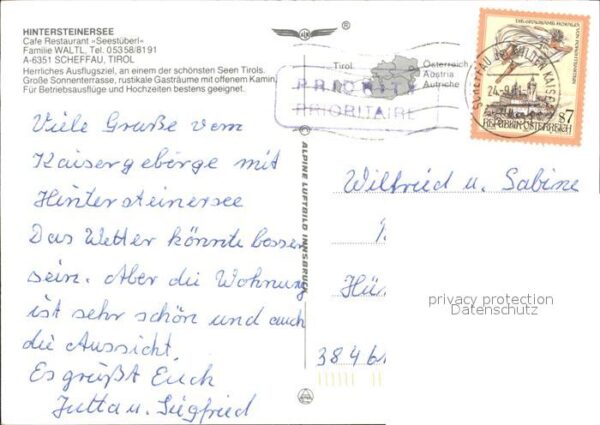 HINTERSTEINERSEE
Cafe Restaurant »Seestüberl«
Familie WALTL, Tel. 05358/8191
A-6351 SCHEFFAU, TIROL
Herrliches Ausflugsziel, an einem der schönsten Seen Tirols.
Große Sonnenterrasse, rustikale Gasträume mit offenem Kamin.
Für Betriebsausflüge und Hochzeiten bestens geeignet.
Viele Grüße vom
Kaisergebirge mit
Hintersteinersee
Das Wetter könnte besser
sein. Aber die Wohnung
ist sehr schön und auch
die Aussicht.
Es grüßt Euch
Jutta u. Siegfried
© ALPINE LUFTBILD INNSBRUCK
®
Tirol
Österreich
Austria
Autriche
PRIORITY
PRIORITAIRE
SCHEFFAU AM WILDEN KAISER
REPUBLIK ÖSTERREICH
S7
Wilfried u. Sabine
Hü
privacy protection
Datenschutz
3846